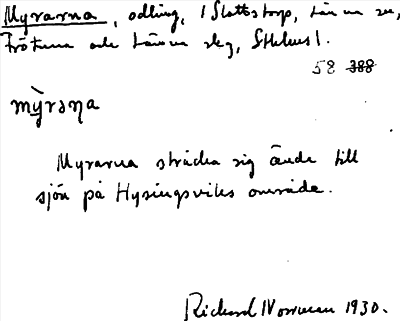 Myrarna, odling, i Slottstorp,
Frökina och
58 388
mỳrəṇa
Myrarna sträcka sig ände till
sjön på Hysingsviks område.
Rickard Norrman 1930.